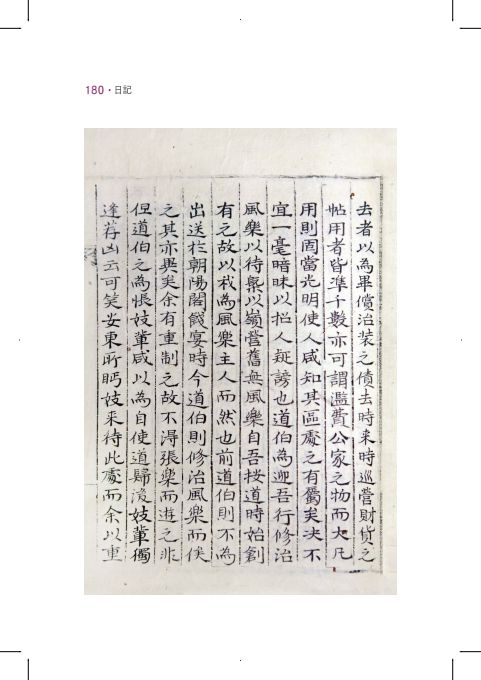 180 · 日記
去者以為畢償治装之債去時来時巡營財貨之
帖用者皆準千數亦可謂濫費公家之物而大凡
用則固當光明使人咸知其區處之有蜀矣决不
宜一毫暗昧以招人疑謗也道伯為迎吾行修治
風樂以待槩以嶺營舊無風樂自吾按道時始創
有之故以我為風樂主人而然也前道伯則不為
出送扵朝陽閣餞宴時今道伯則修治風樂而俟
之其亦異矣余有重制之故不得張樂而遊之非
但道伯之為悵妓輩咸以為自使道歸後妓輩獨
逢荐凶云可笑安東所眄妓来待此處而余以重